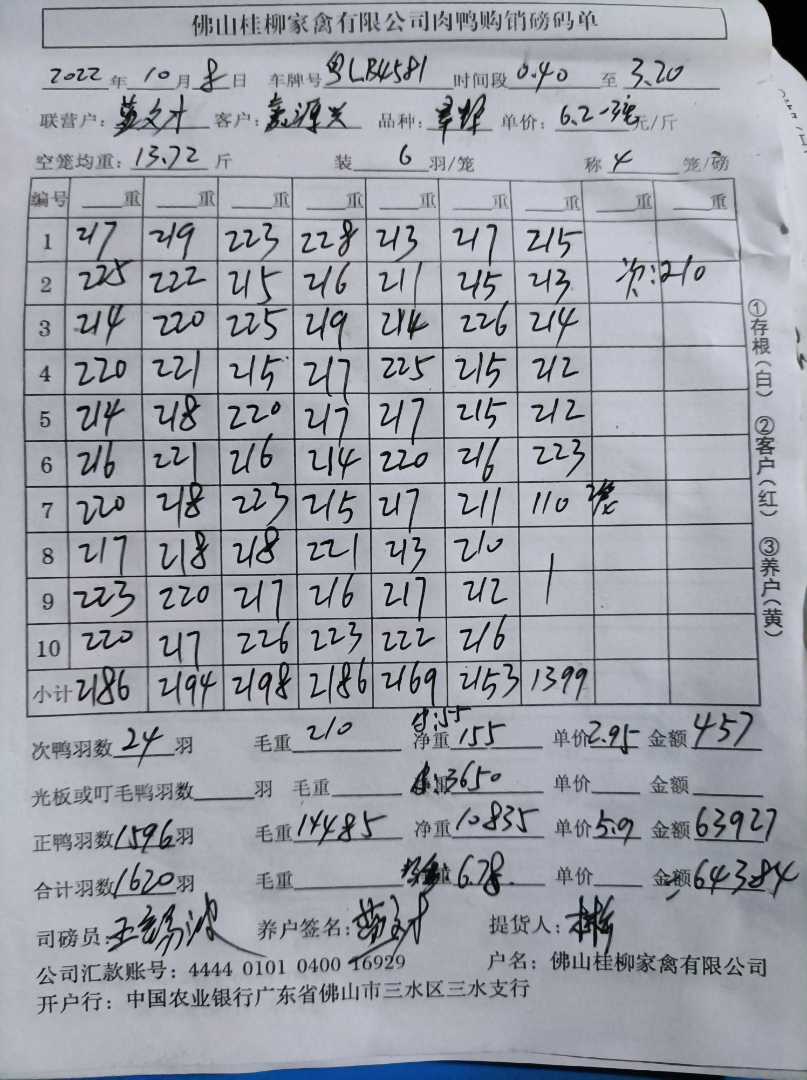 佛山桂柳家禽有限公司肉鸭购销磅码单
2022年10月8日 车牌号粤LB4581 时间段0.40至3.20
联营户： 客户： 品种： 单价：6.2 元/斤
空笼均重：13.72斤 装6羽/笼 称4笼/磅
编号 重 重 重 重 重 重 重 重 重
1 217 219 223 228 213 217 215
2 225 222 215 216 211 215 213 次：210
3 214 220 225 219 214 226 214
4 220 221 215 217 225 215 212
5 214 218 220 217 217 215 212
6 216 221 216 214 220 216 223
7 220 218 223 215 217 211 110 2笼
8 217 218 218 221 213 210
9 223 220 217 216 217 212
10 220 217 226 223 222 216
小计 2186 2194 2198 2186 2169 2153 1399
次鸭羽数24羽 毛重210 :55 净重155 单价2.95 金额457
光板或叮毛鸭羽数 羽 毛重 :3650 单价 金额
正鸭羽数1596羽 毛重14485 净重10835 单价5.9 金额63927
合计羽数1620羽 毛重 6.78 单价 金额64384
司磅员： 养户签名： 提货人：
公司汇款账号：4444 0101 0400 16929 户名：佛山桂柳家禽有限公司
开户行：中国农业银行广东省佛山市三水区三水支行
①存根（白） ②客户（红） ③养户（黄）